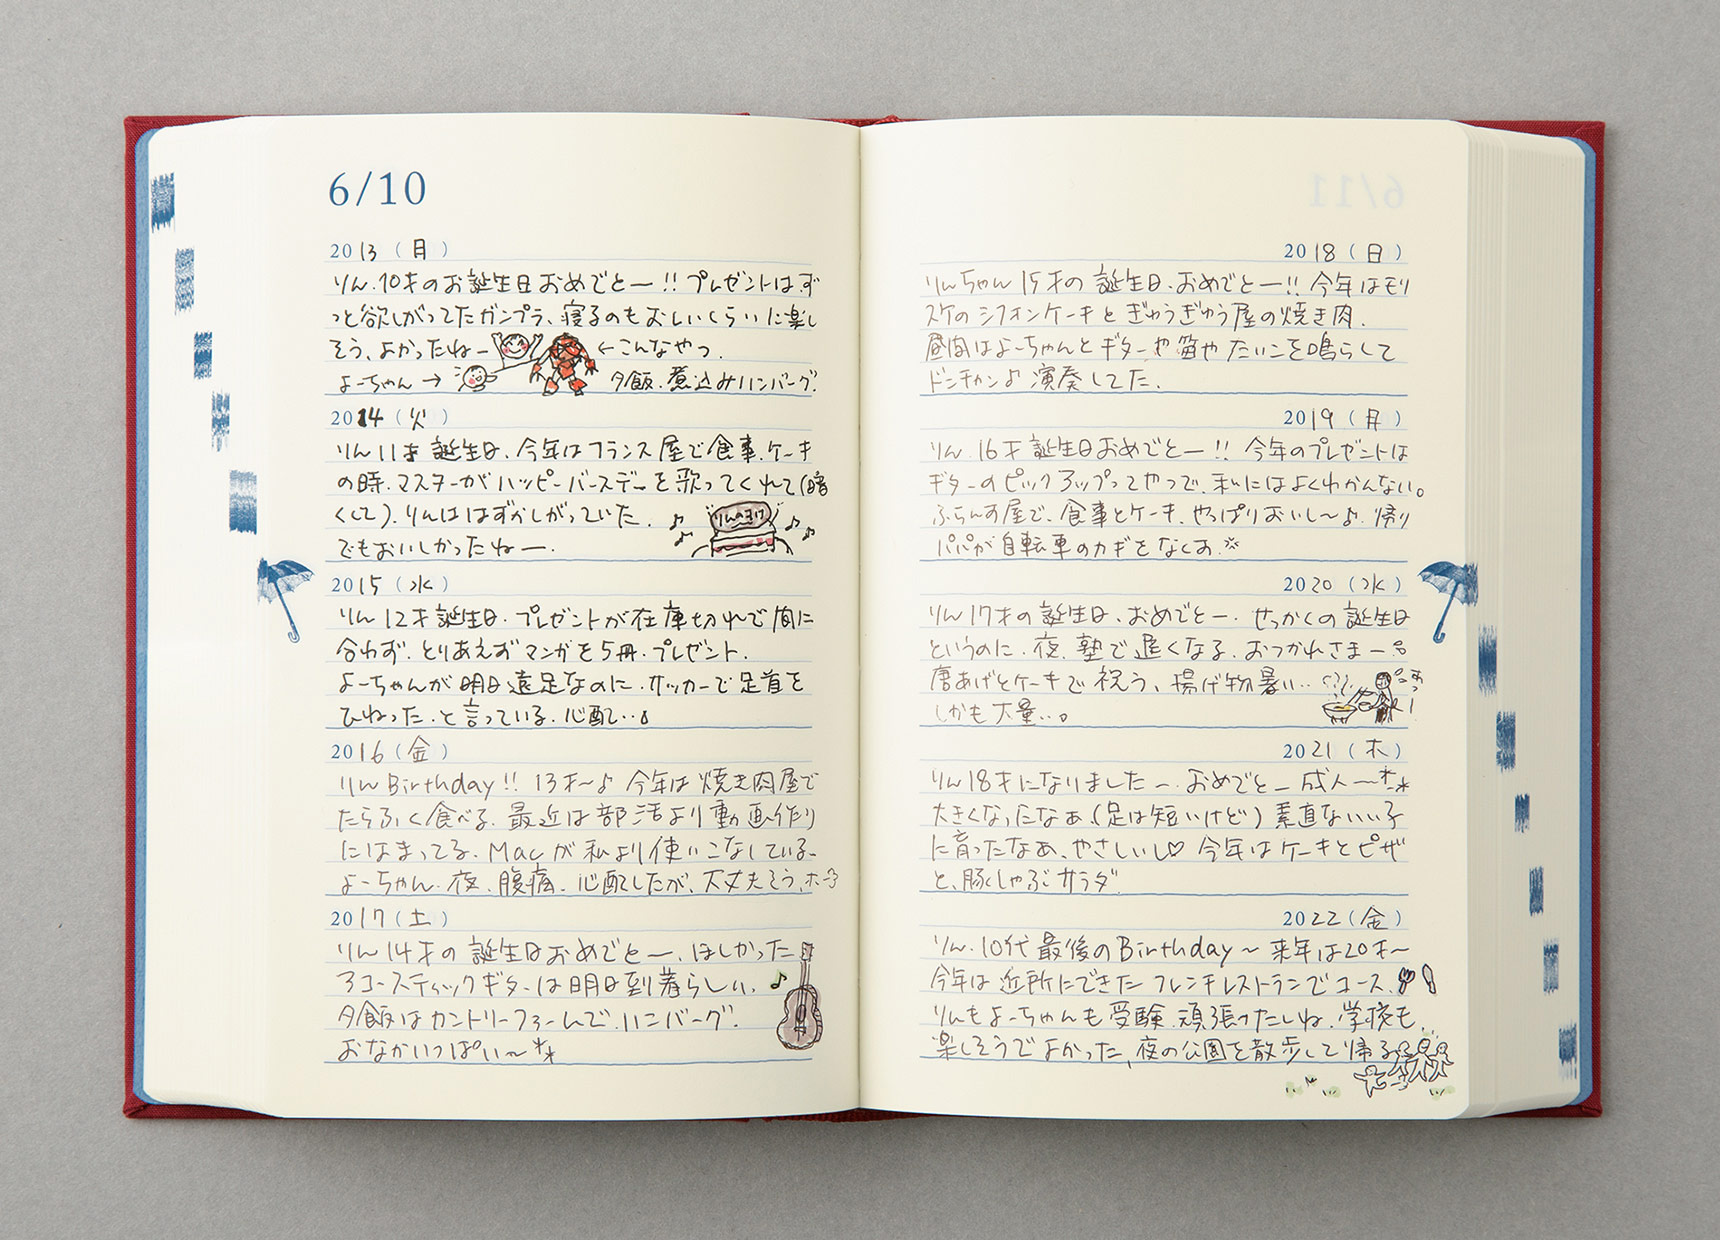 6/10
2013（月）
りん.10才のお誕生日おめでとー!! プレゼントは.ず
っと欲しがってたガンプラ、寝るのもおしいくらいに楽し
そう、よかったねー ←こんなやつ
よーちゃん→ 夕飯.煮込みハンバーグ.
2014（火）
りん11才誕生日、今年はフランス屋で食事.ケーキ
の時.マスターがハッピーバースデーを歌ってくれて(暗
くして).りんははずかしがっていた.
でもおいしかったねー.
2015（水）
りん12才誕生日.プレゼントが在庫切れで間に
合わず.とりあえずマンガを5冊.プレゼント.
よーちゃんが明日遠足なのに.サッカーで足首を
ひねった.と言っている.心配…。
2016（金）
りんBirthday!! 13才〜♪ 今年は焼き肉屋で
たらふく食べる.最近は部活より動画作り
にはまってる.Macが私より使いこなしている.
よーちゃん.夜、腹痛.心配したが、大丈夫そう.ホッ
2017（土）
りん14才の誕生日おめでとー.ほしかった
アコースティックギターは明日到着らしい.
夕飯はカントリーファームで.ハンバーグ.
おなかいっぱい〜
6/11
2018（日）
りんちゃん15才の誕生日.おめでとー!! 今年はモリ
スケのシフォンケーキとぎゅうぎゅう屋の焼き肉.
昼間はよーちゃんとギターや笛やたいこを鳴らして
ドンチャン♪演奏してた.
2019（月）
りん.16才誕生日おめでとー!! 今年のプレゼントは
ギターのピックアップってやつで.私にはよくわかんない。
ふらんす屋で、食事とケーキ.やっぱりおいし〜♪.帰り
パパが自転車のカギをなくす.
2020（水）
りん17才の誕生日、おめでとー.せっかくの誕生日
というのに.夜、塾で遅くなる.おつかれさまー
唐あげとケーキで祝う、揚げ物暑い…
しかも大量…。
2021（木）
りん18才になりましたー.おめでとー成人ー
大きくなったなぁ(足は短いけど)素直ないい子
に育ったなあ、やさしいし♡ 今年はケーキとピザ
と、豚しゃぶサラダ.
2022（金）
りん.10代最後のBirthday〜来年は20才〜
今年は近所にできたフレンチレストランでコース.
りんもよーちゃんも受験.頑張ったしね.学校も
楽しそうでよかった、夜の公園を散歩して帰る